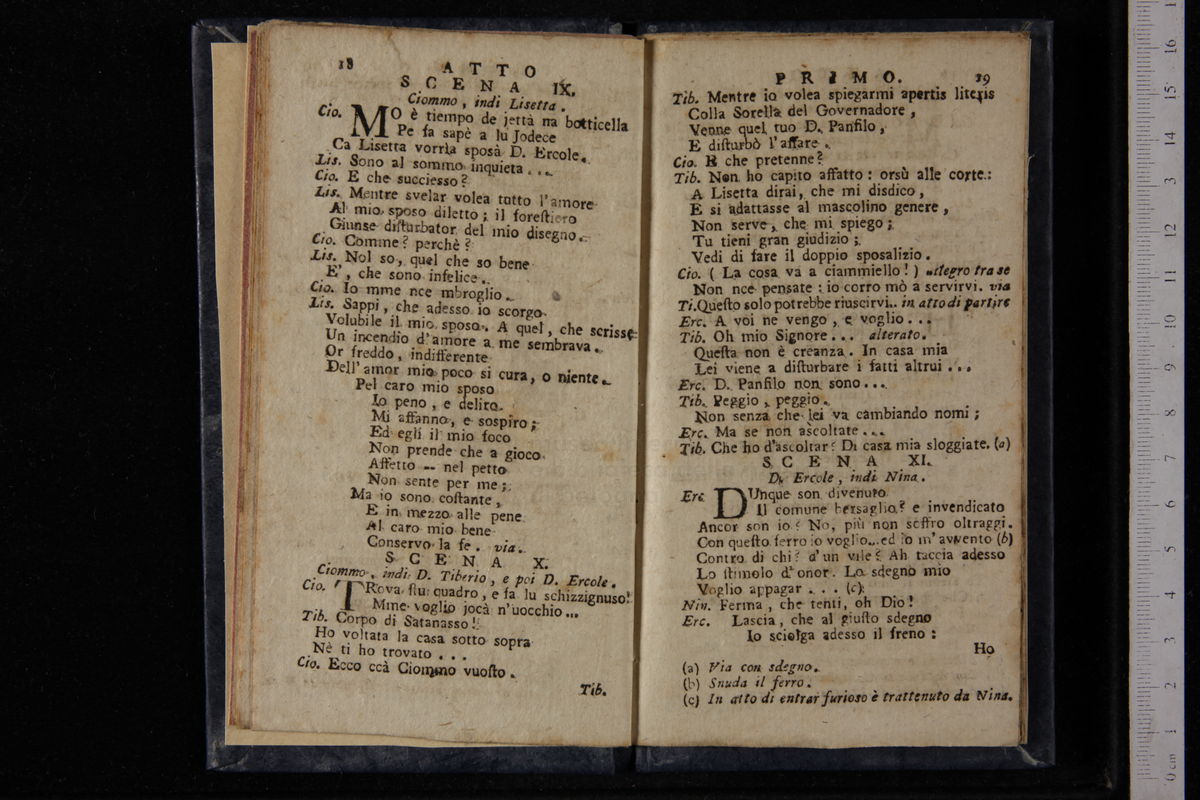 18
ATTO
SCENA IX.
Ciommo, indi Lisetta.
Cio. MO è tiempo de jettà na botticella
Pe fa sapè a lu Jodece
Ca Lisetta vorrìa sposà D. Ercole.
Lis. Sono al sommo inquieta...
Cio. E che succiesso?
Lis. Mentre svelar volea tutto l'amore
Al mio sposo diletto; il foreſtiero
Giunse diſturbator del mio disegno.
Cio. Comme? perchè?
Lis. Nol so, quel che so bene
E', che sono infelice.
Cio. Io mme nce mbroglio.
Lis. Sappi, che adesso io scorgo
Volubile il mio sposo. A quel, che scrisse
Un incendio d'amore a me sembrava.
Or freddo, indifferente
Dell'amor mio poco si cura, o niente.
Pel caro mio sposo
Io peno, e deliro.
Mi affanno, e sospiro;
Ed egli il mio foco
Non prende che a gioco.
Affetto -- nel petto
Non sente per me;
Ma io sono coſtante,
E in mezzo alle pene
Al caro mio bene
Conservo la fe. via.
SCENA X.
Ciommo, indi D. Tiberio, e poi D. Ercole.
Cio. TRova ſtu quadro, e fa lu schizzignuso!
Mme voglio jocà n'uocchio...
Tib. Corpo di Satanasso!
Ho voltata la casa sotto sopra
Nè ti ho trovato...
Cio. Ecco ccà Ciommo vuoſto.
Tib.
PRIMO.
19
Tib. Mentre io volea spiegarmi apertis literis
Colla Sorella del Governadore,
Venne quel tuo D. Panfilo,
E diſturbò l'affare.
Cio. E che pretenne?
Tib. Non ho capito affatto: orsù alle corte:
A Lisetta dirai, che mi disdico,
E si adattasse al mascolino genere,
Non serve, che mi spiego;
Tu tieni gran giudizio;
Vedi di fare il doppio sposalizio.
Cio. (La cosa va a ciammiello!) allegro tra se
Non nce pensate: io corro mò a servirvi. via
Ti. Queſto solo potrebbe riuscirvi.. in atto di partire
Erc. A voi ne vengo, e voglio...
Tib. Oh mio Signore... alterato.
Queſta non è creanza. In casa mia
Lei viene a diſturbare i fatti altrui...
Erc. D. Panfilo non sono...
Tib. Peggio, peggio.
Non senza che lei va cambiando nomi;
Erc. Ma se non ascoltate...
Tib. Che ho d'ascoltar? Di casa mia sloggiate. (a)
SCENA XI.
D. Ercole, indi Nina.
Erc DUnque son divenuto
Il comune bersaglio? e invendicato
Ancor son io? No, più non soffro oltraggi.
Con queſto ferro io voglio...ed io m'avvento (b)
Contro di chi? d'un vile? Ah taccia adesso
Lo ſtimolo d'onor. Lo sdegno mio
Voglio appagar... (c)
Nin. Ferma, che tenti, oh Dio!
Erc. Lascia, che al giuſto sdegno
Io sciolga adesso il freno:
Ho
(a) Via con sdegno.
(b) Snuda il ferro.
(c) In atto di entrar furioso è trattenuto da Nina.